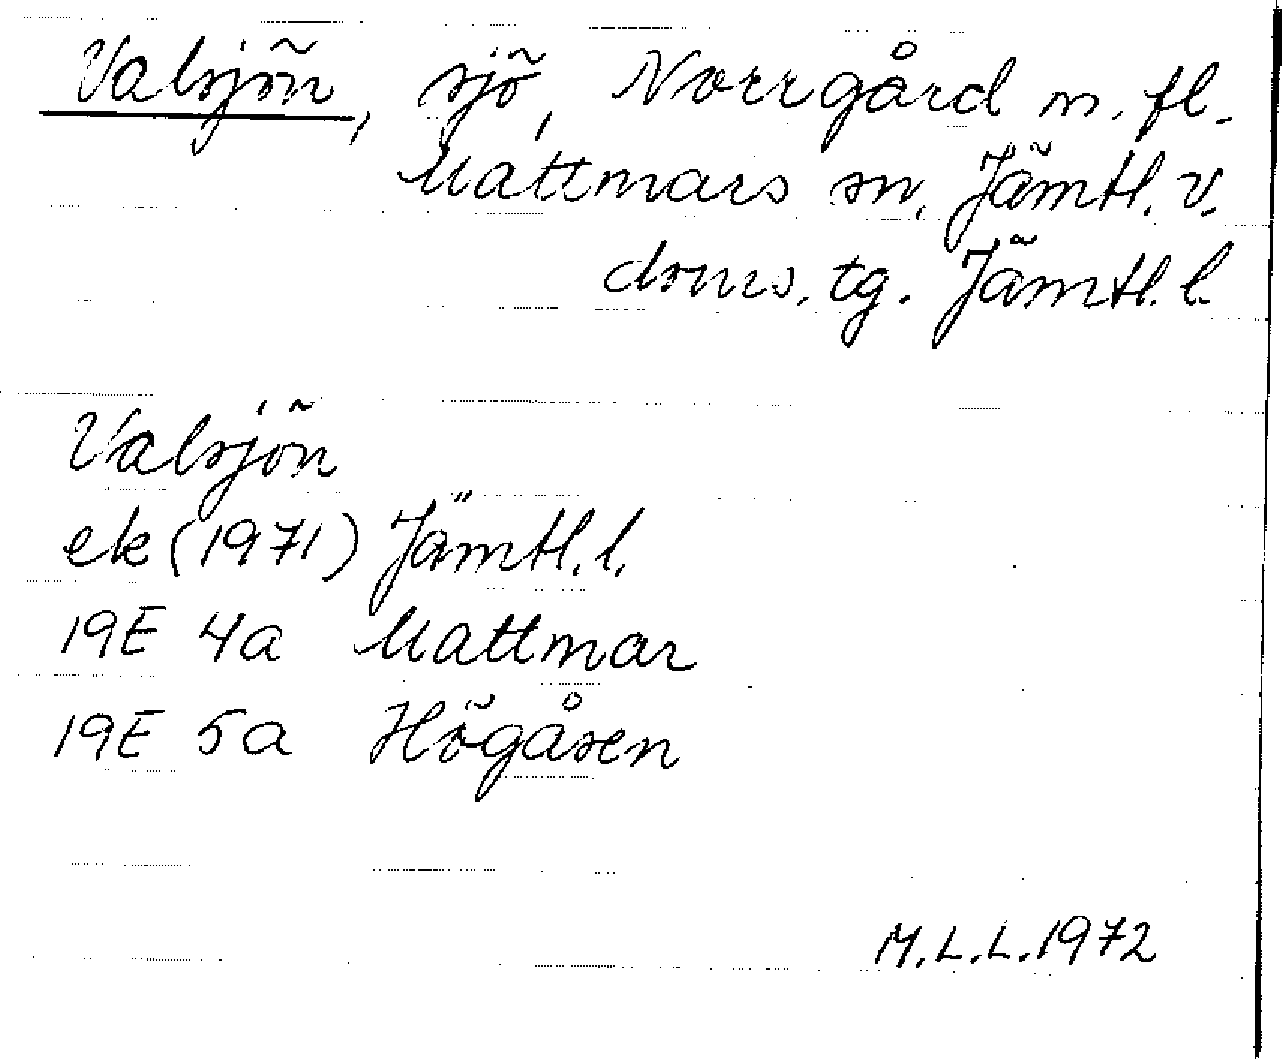 Valsjön, sjö, Norrgård m. fl.
Mattmars sn, Jämtl. v.
doms. tg. Jämtl. l.
Valsjön
ek (1971) Jämtl. l.
19E 4a Mattmar
19E 5a Högåsen
M.L.L. 1972